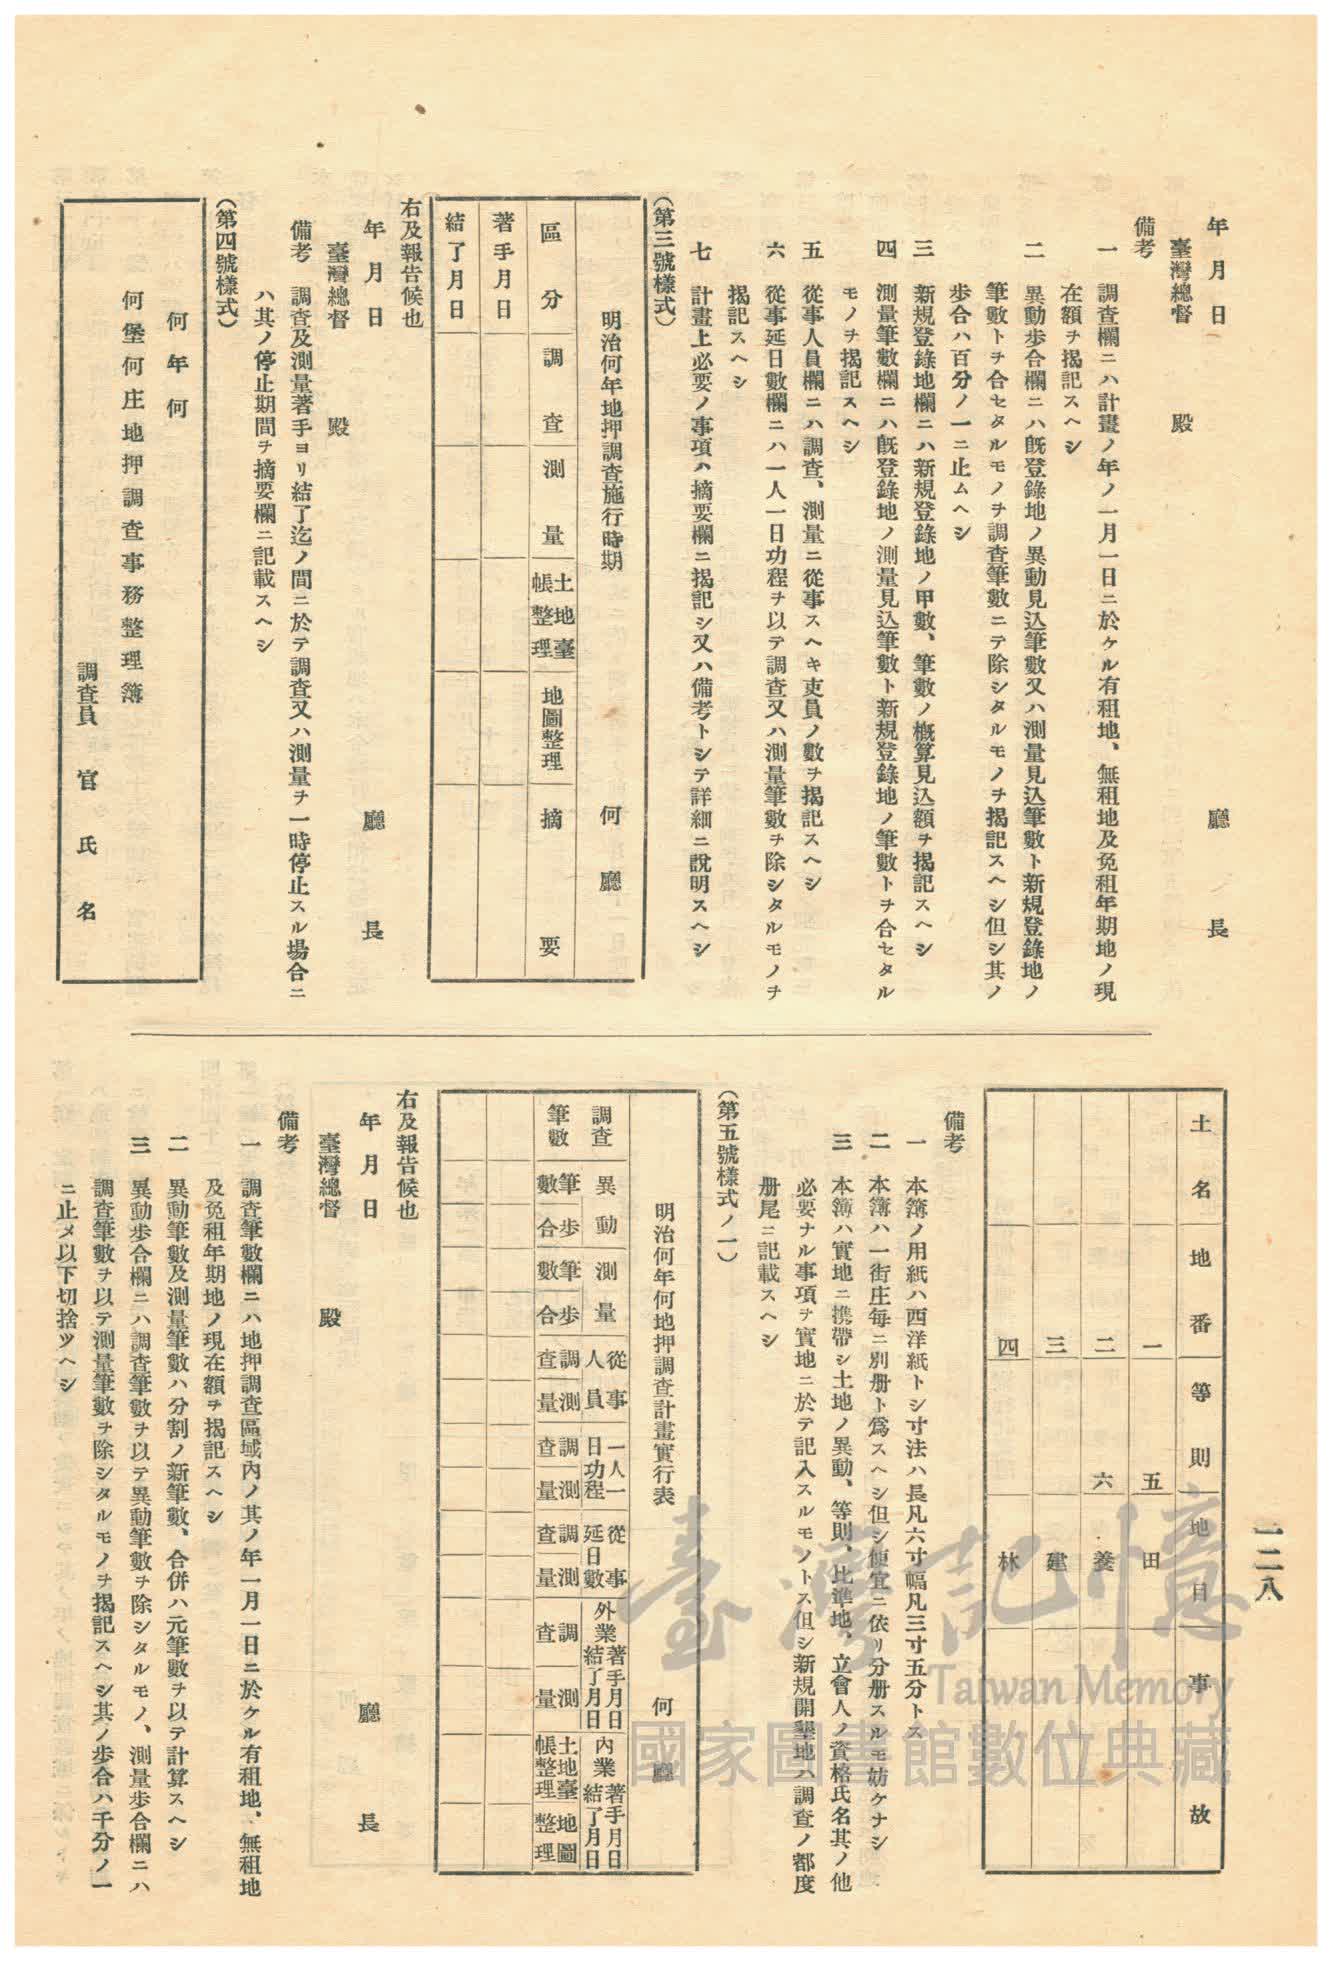 一二八
年月日
廳長
臺灣總督 殿
備考
一 調查欄ニハ計畫ノ年ノ一月一日ニ於ケル有租地、無租地及免租年期地ノ現
在額ヲ揭記スヘシ
二 異動步合欄ニハ旣登錄地ノ異動見込筆數又ハ測量見込筆數ト新規登錄地ノ
筆數トヲ合セタルモノヲ調查筆數ニテ除シタルモノヲ揭記スヘシ但シ其ノ
步合ハ百分ノ一ニ止ムヘシ
三 新規登錄地欄ニハ新規登錄地ノ甲數、筆數ノ槪算見込額ヲ揭記スヘシ
四 測量筆數欄ニハ旣登錄地ノ測量見込筆數ト新規登錄地ノ筆數トヲ合セタル
モノヲ揭記スヘシ
五 從事人員欄ニハ調查、測量ニ從事スヘキ吏員ノ數ヲ揭記スヘシ
六 從事延日數欄ニハ一人一日功程ヲ以テ調查又ハ測量筆數ヲ除シタルモノヲ
揭記スヘシ
七 計畫上必要ノ事項ハ摘要欄ニ揭記シ又ハ備考トシテ詳細ニ說明スヘシ
(第三號樣式)
明治何年地押調查施行時期 何廳
區分 調查 測量 土地臺帳整理 地圖整理 摘要
著手月日
結了月日
右及報告候也
年月日 廳長
臺灣總督 殿
備考 調查及測量著手ヨリ結了迄ノ間ニ於テ調查又ハ測量ヲ一時停止スル場合ニ
ハ其ノ停止期間ヲ摘要欄ニ記載スヘシ
(第四號樣式)
何年何
何堡何庄地押調查事務整理簿
調查員 官氏名
土名 地番 等則 地目 事故
一 五 田
二 六 養
三 建
四 林
備考
一 本簿ノ用紙ハ西洋紙トシ寸法ハ長凡六寸幅凡三寸五分トス
二 本簿ハ一街庄每ニ別册ト爲スヘシ但シ便宜ニ依リ分册スルモ妨ケナシ
三 本簿ハ實地ニ携帶シ土地ノ異動、等則、比準地、立會人ノ資格氏名其ノ他
必要ナル事項ヲ實地ニ於テ記入スルモノトス但シ新規開墾地ハ調查ノ都度
册尾ニ記載スヘシ
(第五號樣式ノ一)
明治何年何地押調查計畫實行表 何廳
調查筆數
異動 筆數 步合
測量 筆數 步合
從事人員 調查 測量
一人一日功程 調查 測量
從事延日數 調查 測量
外業著手月日結了月日 調查 測量
內業著手月日結了月日 土地臺帳整理 地圖整理
右及報告候也
年月日 廳長
臺灣總督 殿
備考
一 調查筆數欄ニハ地押調查區域內ノ其ノ年一月一日ニ於ケル有租地、無租地
及免租年期地ノ現在額ヲ揭記スヘシ
二 異動筆數及測量筆數ハ分割ノ新筆數、合併ハ元筆數ヲ以テ計算スヘシ
三 異動步合欄ニハ調查筆數ヲ以テ異動筆數ヲ除シタルモノ、測量步合欄ニハ
調查筆數ヲ以テ測量筆數ヲ除シタルモノヲ揭記スヘシ其ノ步合ハ千分ノ一
ニ止メ以下切捨ツヘシ
臺灣記憶
Taiwan Memory
國家圖書館數位典藏